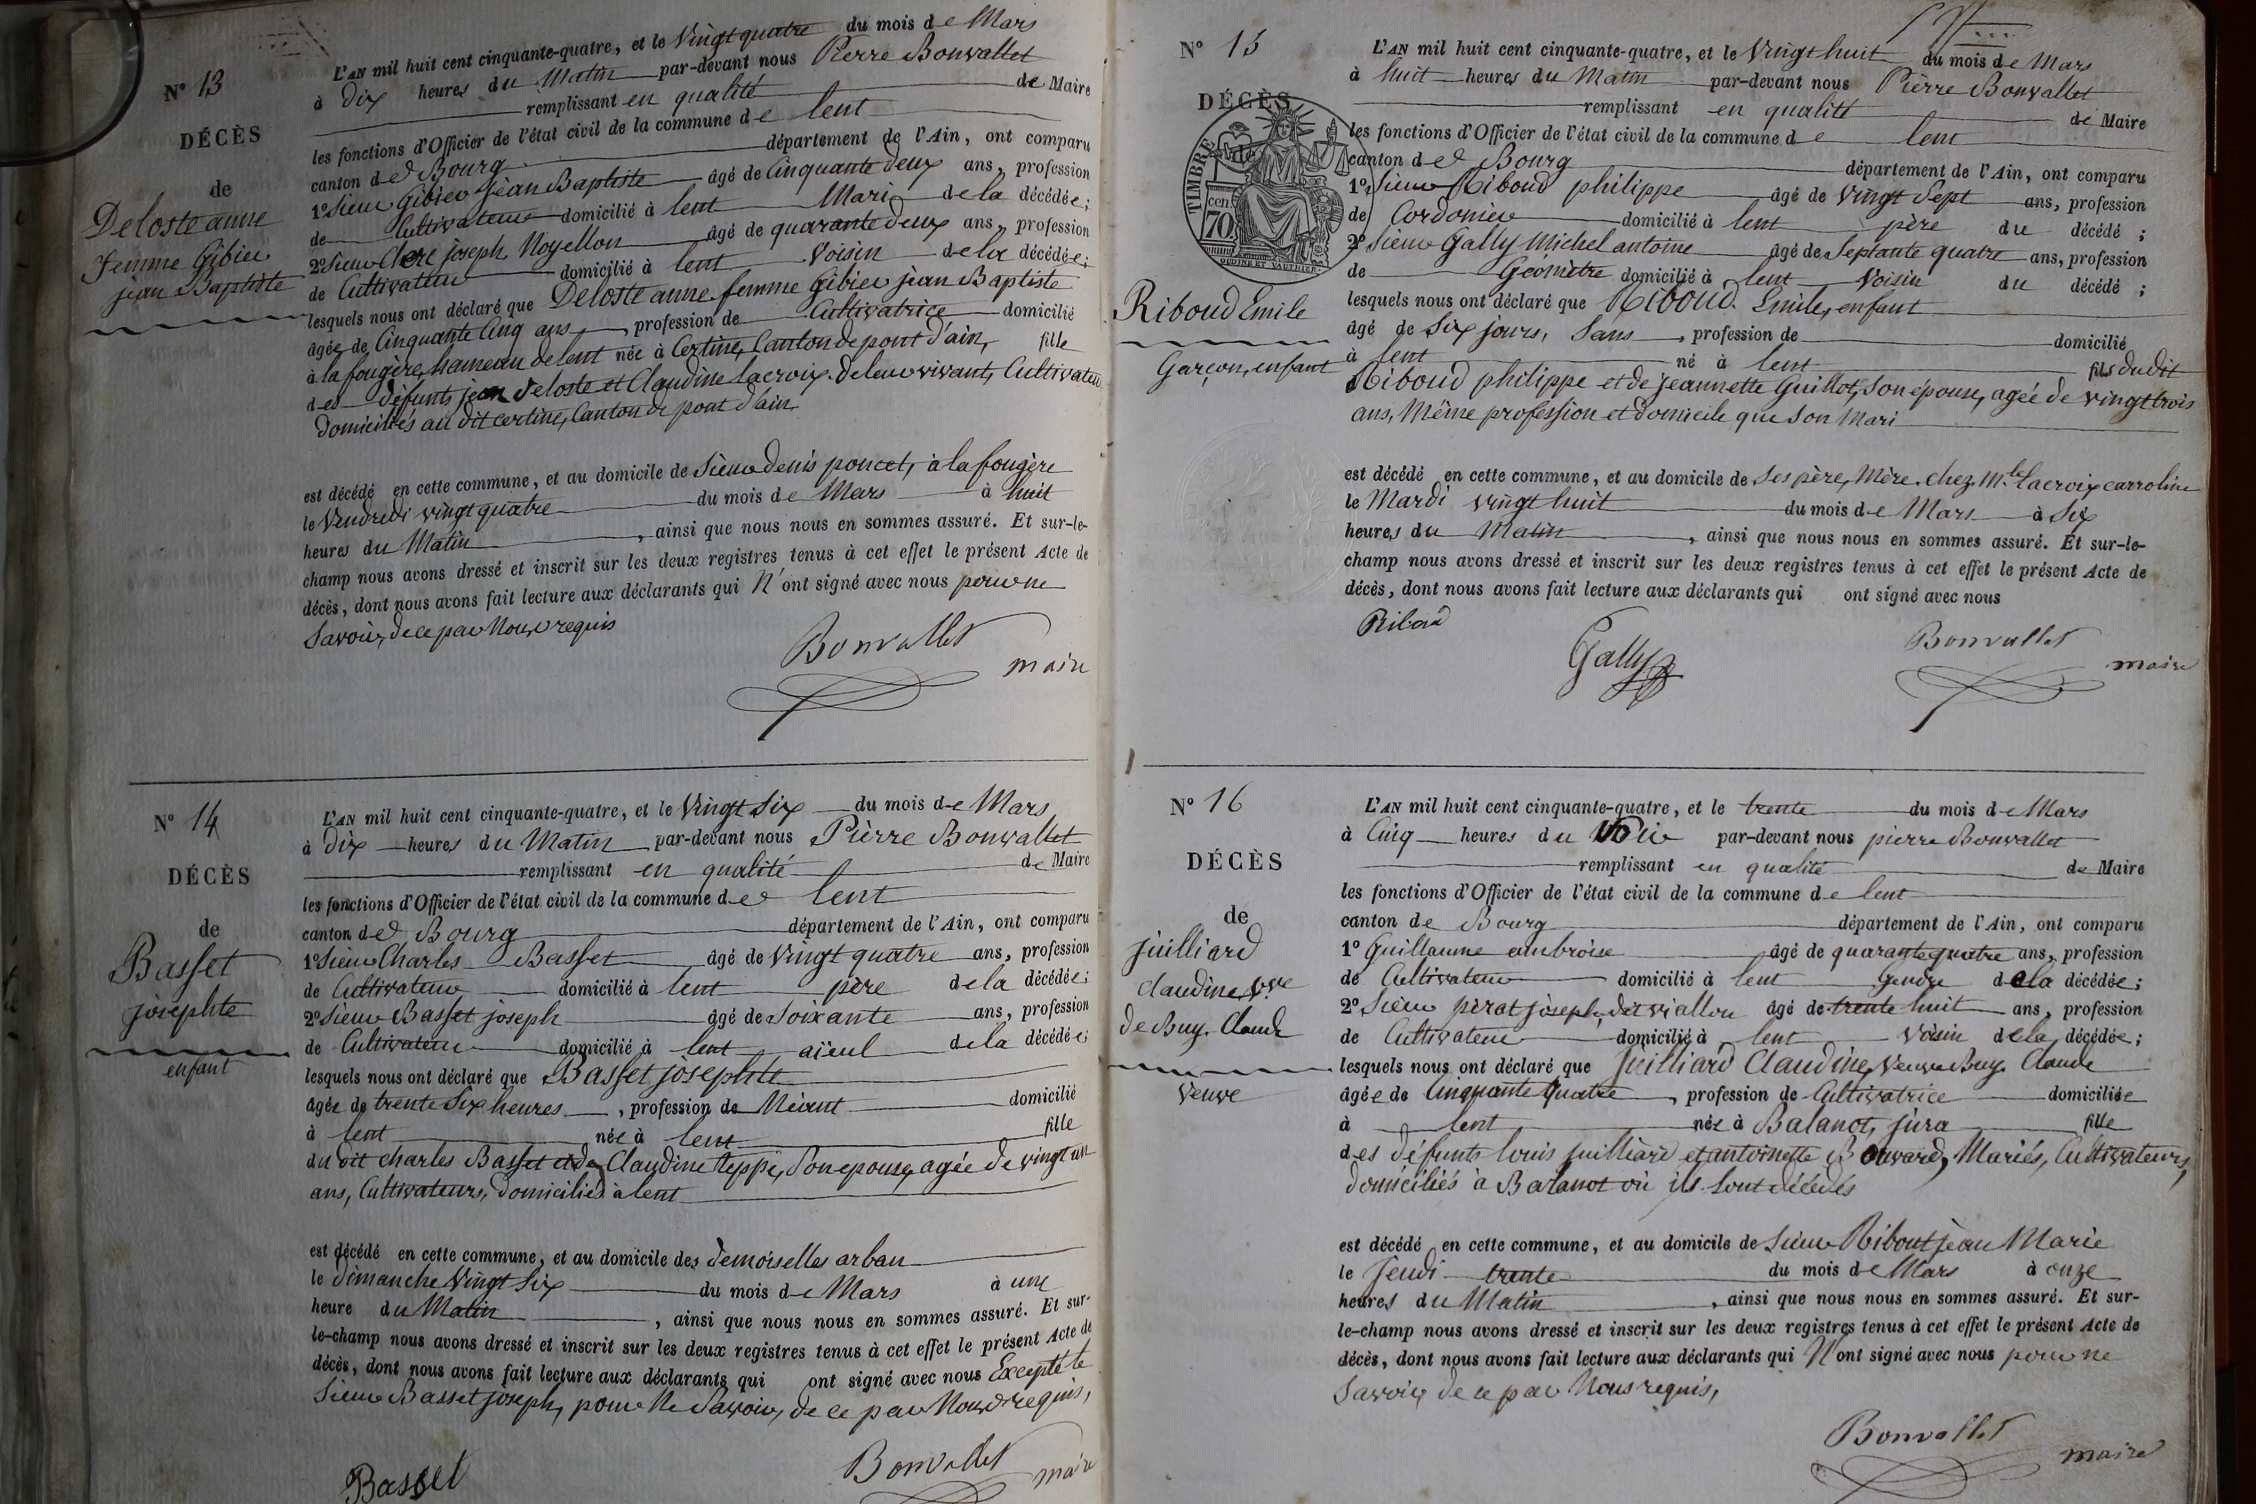 N° 13
DÉCÈS
de
Deloste anne
femme Gibier
jean Baptiste
L'AN mil huit cent cinquante-quatre, et le Vingt quatre du mois de Mars
à Dix heures du Matin par-devant nous Pierre Bonvallet
remplissant en qualité de Maire
les fonctions d'Officier de l'état civil de la commune de lent
canton de Bourg département de l'Ain, ont comparu
1° Sieur Gibier jean Baptiste âgé de Cinquante deux ans, profession
de Cultivateur domicilié à lent Mari de la décédée;
2° Sieur Clerc joseph Noyellon âgé de quarante deux ans, profession
de Cultivateur domicilié à lent Voisin de la décédée;
lesquels nous ont déclaré que Deloste anne femme Gibier jean Baptiste
âgée de Cinquante Cinq ans, profession de Cultivatrice domicilié
à la fougère, hameau de lent née à Certine, Canton de pont d'ain, fille
des défunts jean Deloste et Claudine Lacroix de leur vivant, Cultivateurs
domiciliés au dit certine, Canton de pont d'ain
est décédé en cette commune, et au domicile de Sieur Denis poncet, à la fougère
le Vendredi vingt quatre du mois de Mars à huit
heures du Matin, ainsi que nous nous en sommes assuré. Et sur-le-
champ nous avons dressé et inscrit sur les deux registres tenus à cet effet le présent Acte de
décès, dont nous avons fait lecture aux déclarants qui N'ont signé avec nous pour ne
Savoir, de ce par Nous requis
Bonvallet
maire
N° 14
DÉCÈS
de
Basset
josephte
enfant
L'AN mil huit cent cinquante-quatre, et le Vingt Six du mois de Mars
à Dix heures du Matin par-devant nous Pierre Bonvallet
remplissant en qualité de Maire
les fonctions d'Officier de l'état civil de la commune de lent
canton de Bourg département de l'Ain, ont comparu
1° Sieur Charles Basset âgé de Vingt quatre ans, profession
de Cultivateur domicilié à lent père de la décédée;
2° Sieur Basset joseph âgé de Soixante ans, profession
de Cultivateur domicilié à lent aïeul de la décédée;
lesquels nous ont déclaré que Basset josephte
âgée de trente Six heures, profession de Néant domicilié
à lent née à lent fille
du dit charles Basset et de Claudine Teppe, Son epouse, agée de vingt un
ans, Cultivateurs, Domiciliés à lent
est décédé en cette commune, et au domicile des Demoiselles arban
le dimanche Vingt Six du mois de Mars à une
heure du Matin, ainsi que nous nous en sommes assuré. Et sur-
le-champ nous avons dressé et inscrit sur les deux registres tenus à cet effet le présent Acte de
décès, dont nous avons fait lecture aux déclarants qui ont signé avec nous Excepté le
Sieur Basset joseph, pour Ne Savoir, de ce par Nous requis,
Basset
Bonvallet
maire
N° 15
DÉCÈS
de
TIMBRE
70
cen
OUDINÉ ET VAUTHIER
Riboud Emile
Garçon, enfant
L'AN mil huit cent cinquante-quatre, et le Vingt huit du mois de Mars
à huit heures du Matin par-devant nous Pierre Bonvallet
remplissant en qualité de Maire
les fonctions d'Officier de l'état civil de la commune de lent
canton de Bourg département de l'Ain, ont comparu
1° Sieur Riboud philippe âgé de Vingt Sept ans, profession
de Cordonier domicilié à lent père du décédé;
2° Sieur Gally Michel antoine âgé de Septante quatre ans, profession
de Géomètre domicilié à lent Voisin du décédé;
lesquels nous ont déclaré que Riboud Emile, enfant
âgé de Six jours, Sans, profession de domicilié
à lent né à lent fils du dit
Riboud philippe et de jeannette Guillot, Son épouse, agée de vingt trois
ans, Même profession et domicile que Son Mari
est décédé en cette commune, et au domicile de Ses père, Mère, chez Mlle Lacroix carroline
le Mardi vingt huit du mois de Mars à Six
heures du Matin, ainsi que nous nous en sommes assuré. Et sur-le-
champ nous avons dressé et inscrit sur les deux registres tenus à cet effet le présent Acte de
décès, dont nous avons fait lecture aux déclarants qui ont signé avec nous
Riboud
Gally
Bonvallet
maire
N° 16
DÉCÈS
de
juilliard
claudine, Vve
de Buy. Claude
Veuve
L'AN mil huit cent cinquante-quatre, et le trente du mois de Mars
à Cinq heures du Soir par-devant nous pierre Bonvallet
remplissant en qualité de Maire
les fonctions d'Officier de l'état civil de la commune de lent
canton de Bourg département de l'Ain, ont comparu
1° Guillaume ambroise âgé de quarante quatre ans, profession
de Cultivateur domicilié à lent Gendre de la décédée;
2° Sieur pérat joseph, dit viallon âgé de trente huit ans, profession
de Cultivateur domicilié à lent Voisin de la décédée;
lesquels nous ont déclaré que Juilliard Claudine, Veuve Buy. Claude
âgée de Cinquante Quatre, profession de Cultivatrice domiciliée
à lent née à Balanot, jura fille
des défunts louis juilliard et antoinette Bouvard, Mariés, Cultivateurs,
domiciliés à Balanot où ils sont décédés
est décédé en cette commune, et au domicile de Sieur Ribout jean Marie
le Jeudi trente du mois de Mars à onze
heures du Matin, ainsi que nous nous en sommes assuré. Et sur-
le-champ nous avons dressé et inscrit sur les deux registres tenus à cet effet le présent Acte de
décès, dont nous avons fait lecture aux déclarants qui N'ont signé avec nous pour ne
Savoir, de ce par Nous requis,
Bonvallet
maire